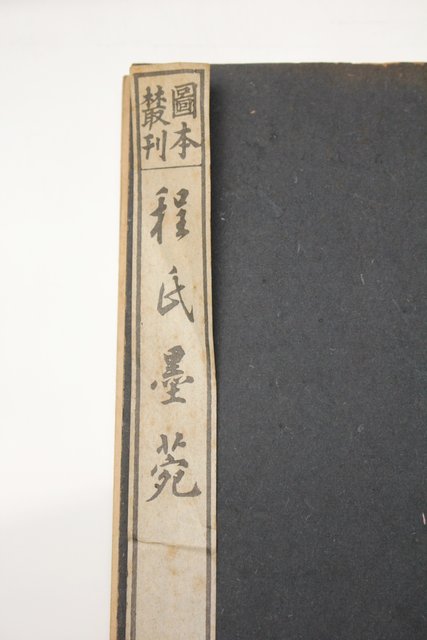 圖本
叢刊
程氏墨菀